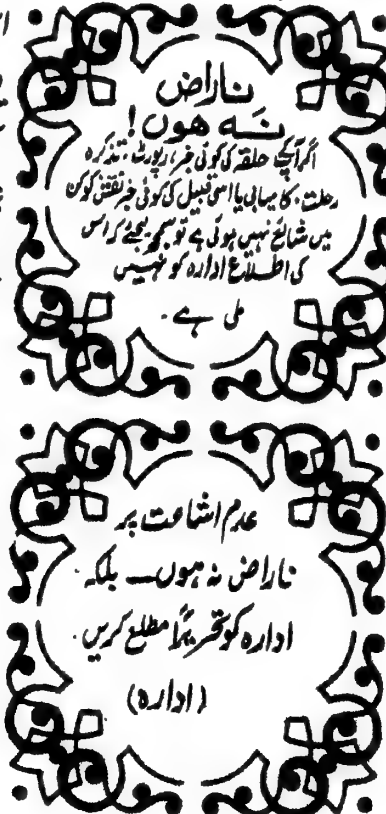 ناراض
نہ ھوں!
اگر آپکے حلقہ کی کوئی خبر، رپورٹ، تذکرہ
رحلت، کامیابی یا اسی قبیل کی کوئی خبر نقش کوکن
میں شائع نہیں ہوئی ہے تو سمجھ لیجئے کہ اس
کی اطلاع ادارہ کو نہیں
ملی ہے۔
عدم اشاعت پر
ناراض نہ ہوں۔ بلکہ
ادارہ کو تحریراً مطلع کریں۔
(ادارہ)